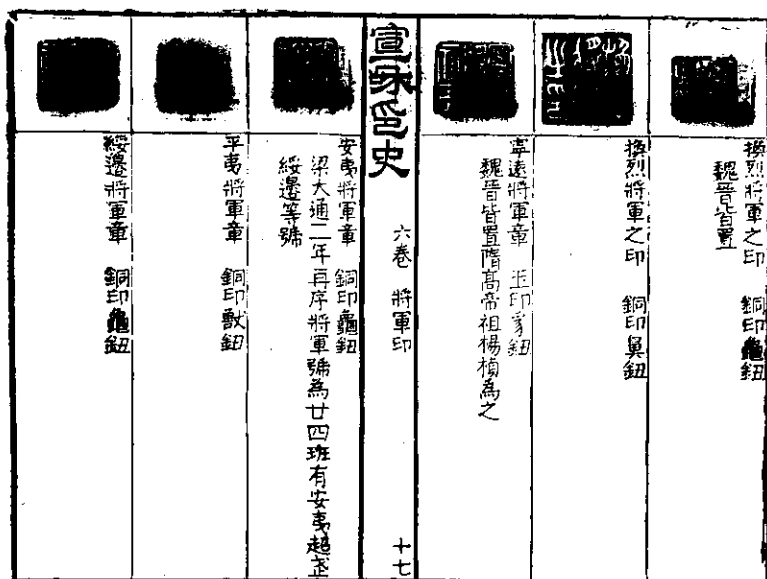 換烈將軍之印 銅印龜鈕
魏晉皆置
換烈將軍之印 銅印鼻鈕
寧遠將軍章 玉印豸鈕
魏晉皆置隋高帝祖楊楨為之
宣和印史 六卷 將軍印 十七
安夷將軍章 銅印龜鈕
梁大通二年再序將軍號為廿四班有安夷超
綏邊等號
平夷將軍章 銅印獸鈕
綏邊將軍章 銅印龜鈕